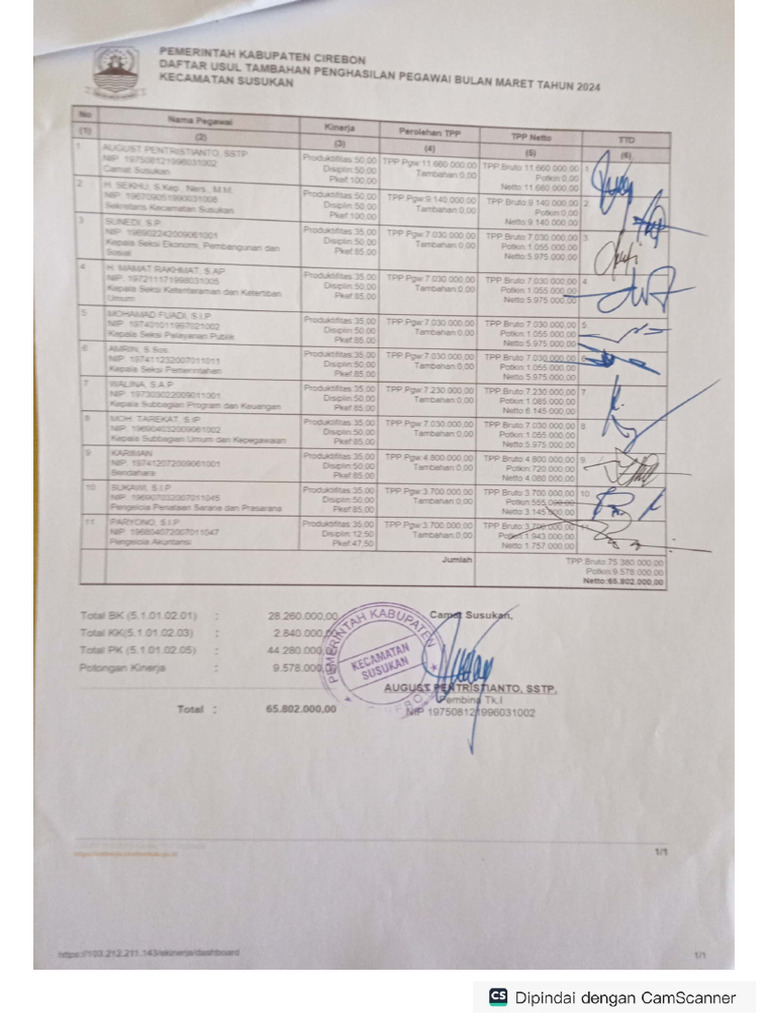 PEMERINTAH KABUPATEN CIREBON
DAFTAR USUL TAMBAHAN PENGHASILAN PEGAWAI BULAN MARET TAHUN 2024
KECAMATAN SUSUKAN
No Nama Pegawai Kinerja Perolehan TPP TPP Netto TTD
(1) (2) (3) (4) (5) (6)
1 AUGUST PENTRISTIANTO, SSTP Produktifitas:50,00 TPP Pgw:11.660.000,00 TPP Bruto:11.660.000,00 1
NIP. 197508121996031002 Disiplin:50,00 Tambahan:0,00 Potkin:0,00
Camat Susukan Pkef:100,00 Netto:11.660.000,00
2 H. SEKHU, S.Kep., Ners., M.M. Produktifitas:50,00 TPP Pgw:9.140.000,00 TPP Bruto:9.140.000,00 2.
NIP. 196709051990031008 Disiplin:50,00 Tambahan:0,00 Potkin:0,00
Sekretaris Kecamatan Susukan Pkef:100,00 Netto:9.140.000,00
3 SUNEDI, S.P. Produktifitas:35,00 TPP Pgw:7.030.000,00 TPP Bruto:7.030.000,00 3.
NIP. 196902242009061001 Disiplin:50,00 Tambahan:0,00 Potkin:1.055.000,00
Kepala Seksi Ekonomi, Pembangunan dan Pkef:85,00 Netto:5.975.000,00
Sosial
4 H. MAMAT RAKHMAT, S.AP Produktifitas:35,00 TPP Pgw:7.030.000,00 TPP Bruto:7.030.000,00 4
NIP. 197211171998031005 Disiplin:50,00 Tambahan:0,00 Potkin:1.055.000,00
Kepala Seksi Ketenteraman dan Ketertiban Pkef:85,00 Netto:5.975.000,00
Umum
5 MOHAMAD FUADI, S.IP Produktifitas:35,00 TPP Pgw:7.030.000,00 TPP Bruto:7.030.000,00 5.
NIP. 197401011997021002 Disiplin:50,00 Tambahan:0,00 Potkin:1.055.000,00
Kepala Seksi Pelayanan Publik Pkef:85,00 Netto:5.975.000,00
6 AMRIN, S.Sos. Produktifitas:35,00 TPP Pgw:7.030.000,00 TPP Bruto:7.030.000,00
NIP. 197411232007011011 Disiplin:50,00 Tambahan:0,00 Potkin:1.055.000,00
Kepala Seksi Pemerintahan Pkef:85,00 Netto:5.975.000,00
7 WALINA, S.A.P Produktifitas:35,00 TPP Pgw:7.230.000,00 TPP Bruto:7.230.000,00 7
NIP. 197303022009011001 Disiplin:50,00 Tambahan:0,00 Potkin:1.085.000,00
Kepala Subbagian Program dan Keuangan Pkef:85,00 Netto:6.145.000,00
8 MOH. TAREKAT, S.IP Produktifitas:35,00 TPP Pgw:7.030.000,00 TPP Bruto:7.030.000,00 8
NIP. 196904032009061002 Disiplin:50,00 Tambahan:0,00 Potkin:1.055.000,00
Kepala Subbagian Umum dan Kepegawaian Pkef:85,00 Netto:5.975.000,00
9 KARIMAN Produktifitas:35,00 TPP Pgw:4.800.000,00 TPP Bruto:4.800.000,00 9.
NIP. 197412072009061001 Disiplin:50,00 Tambahan:0,00 Potkin:720.000,00
Bendahara Pkef:85,00 Netto:4.080.000,00
10 SUKAWI, S.I.P Produktifitas:35,00 TPP Pgw:3.700.000,00 TPP Bruto:3.700.000,00 10
NIP. 196907032007011045 Disiplin:50,00 Tambahan:0,00 Potkin:555.000,00
Pengelola Penataan Sarana dan Prasarana Pkef:85,00 Netto:3.145.000,00
11 PARIYONO, S.I.P Produktifitas:35,00 TPP Pgw:3.700.000,00 TPP Bruto:3.700.000,00
NIP. 196804072007011047 Disiplin:12,50 Tambahan:0,00 Potkin:1.943.000,00
Pengelola Akuntansi Pkef:47,50 Netto:1.757.000,00
Jumlah TPP Bruto:75.380.000,00
Potkin:9.578.000,00
Netto:65.802.000,00
Total BK (5.1.01.02.01) : 28.260.000,00 Camat Susukan,
Total KK(5.1.01.02.03) : 2.840.000,00
Total PK (5.1.01.02.05) : 44.280.000,00
Potongan Kinerja : 9.578.000,00
PEMERINTAH KABUPATEN
KECAMATAN
SUSUKAN
AUGUST PENTRISTIANTO, SSTP.
Pembina Tk.I
Total : 65.802.000,00 NIP 197508121996031002
1/1
https://103.212.211.143/ekinerja/dashboard 1/1
CS Dipindai dengan CamScanner